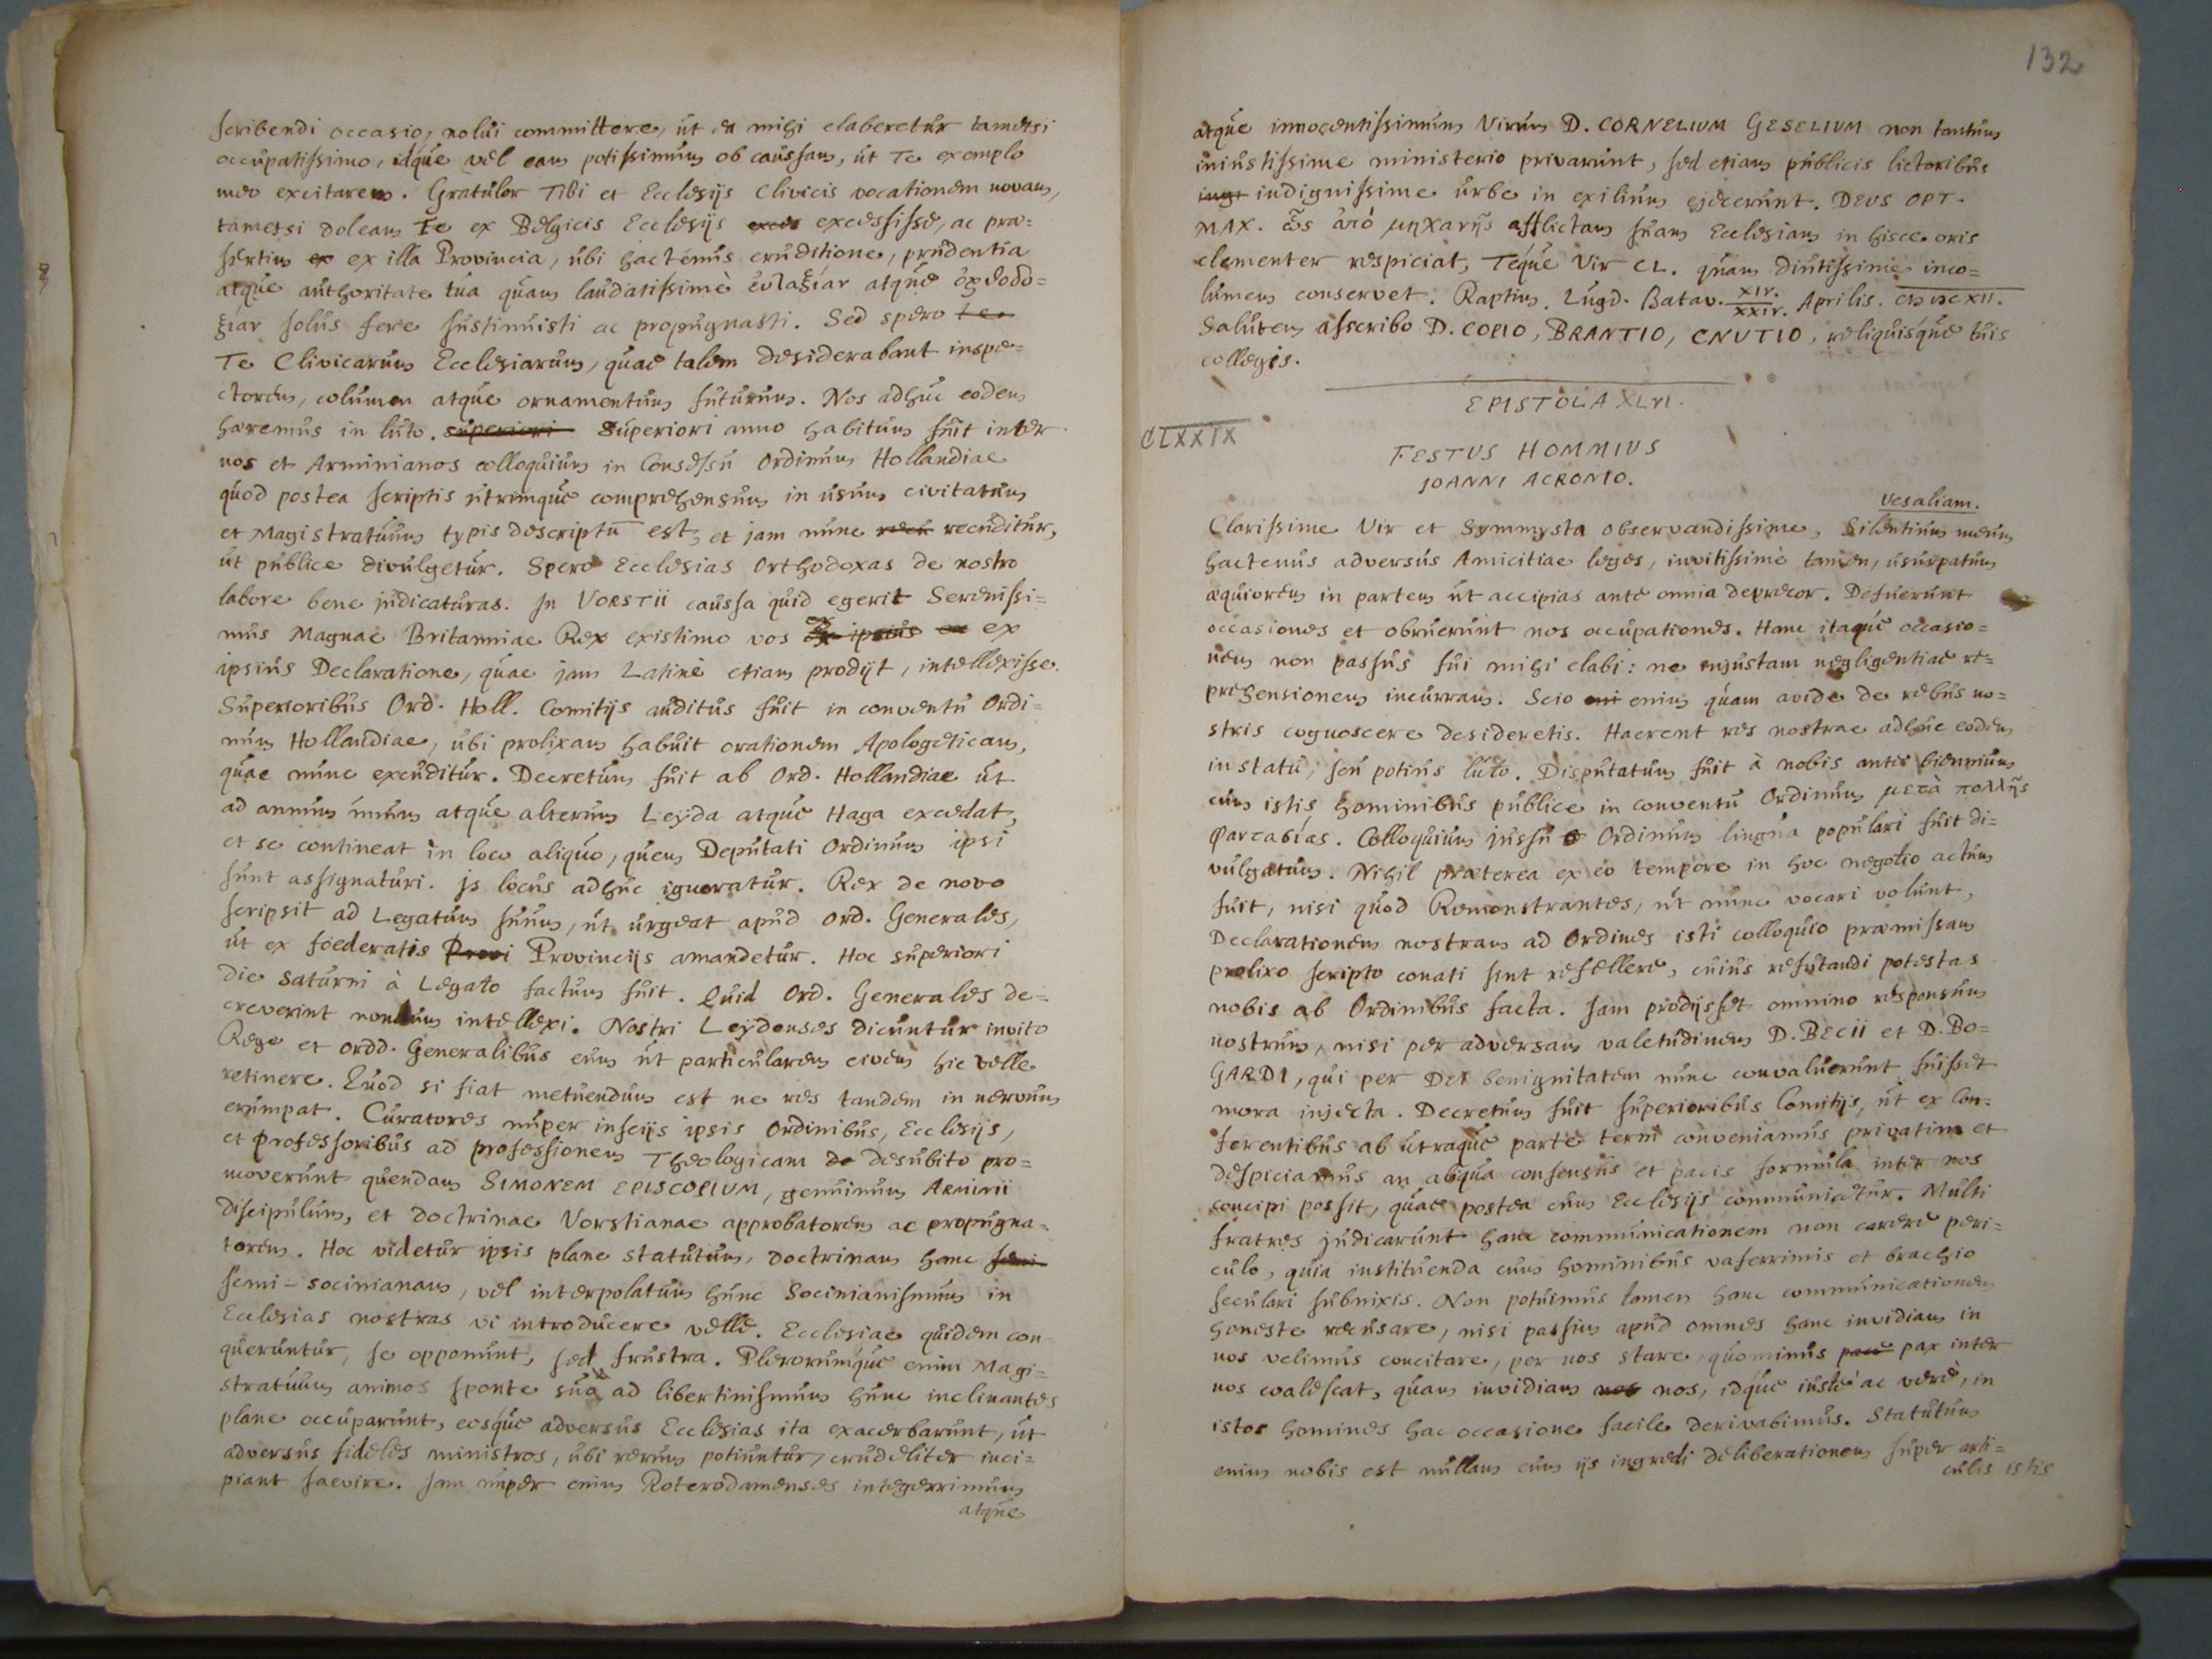 scribendi occasio, nolui committere, ut ea mihi elaberetur tametsi
occupatissimo, idque vel eam potissimum ob caussam, ut Te exemplo
meo excitarem. Gratulor Tibi et Ecclesijs Clivicis vocationem novam,
tametsi doleam Te ex Belgicis Ecclesijs exces excessisse, ac prae=
sertim ex ex illa Provincia, ubi hactenus eruditione, prudentia
atque authoritate tua quam laudatissimè ἐυταξίαν atque ὀρθοδο=
ξίαν solus fere sustinuisti ac propugnasti. Sed spero te
Te Clivicarum Ecclesiarum, quae talem desiderabant inspe=
ctorem, columen atque ornamentum futurum. Nos adhuc eodem
haeremus in luto. superiori Superiori anno habitum fuit inter
nos et Arminianos colloquium in Consessu Ordinum Hollandiae
quod postea scriptis utrimque comprehensum in usum civitatum
et Magistratuum typis descriptū est, et jam nunc recu recuditur,
ut publice divulgetur. Spero Ecclesias Orthodoxas de nostro
labore bene judicaturas. In VORSTII caussa quid egerit Serenissi=
mus Magnae Britanniae Rex existimo vos Ex ipsius ex ex
ipsius Declaratione, quae jam Latinè etiam prodijt, intellexisse.
Superioribus Ord. Holl. Comitijs auditus fuit in conventu Ordi=
num Hollandiae, ubi prolixam habuit orationem Apologeticam,
quae nunc excuditur. Decretum fuit ab Ord. Hollandiae ut
ad annum unum atque alterum Leyda atque Haga excedat,
et se contineat in loco aliquo, quem Deputati Ordinum ipsi
sunt assignaturi. Is locus adhuc ignoratur. Rex de novo
scripsit ad Legatum suum, ut urgeat apud Ord. Generales,
ut ex foederatis Provi Provincijs amandetur. Hoc superiori
die Saturni à Legato factum fuit. Quid Ord. Generales de=
creverint nondum intellexi. Nostri Leydenses dicuntur invito
Rege et Ordd. Generalibus eum ut particularem civem hic velle
retinere. Quod si fiat metuendum est ne res tandem in nervum
erumpat. Curatores nuper insciis ipsis Ordinibus, Ecclesijs,
et professoribus ad professionem Theologicam de desubito pro=
moverunt quendam SIMONEM EPISCOPIUM, genuinum ARMINII
discipulum, et doctrinae Vorstianae approbatorem ac propugna=
torem. Hoc videtur ipsis plane statutum, doctrinam hanc semi
semi-socinianam, vel interpolatum hunc Socinianismum in
Ecclesias nostras vi introducere velle. Ecclesiae quidem con=
queruntur, se opponunt, sed frustra. Plerorumque enim Magi=
stratuum animos sponte sua ad libertinismum hunc inclinantes
plane occuparunt, eosque adversus Ecclesias ita exacerbarunt, ut
adversus fideles ministros, ubi rerum potiuntur, crudeliter inci=
piant saevire. Jam nuper enim Roterodamenses integerrimum
atque
132
atque innocentissimum Virum D. CORNELIUM GESELIUM non tantum
iniustissime ministerio privarunt, sed etiam publicis lictoribus
indignissime urbe in exilium ejecerunt. DEUS OPT.
MAX. ὣς ἀπὸ μηχανῆς afflictam suam Ecclesiam in hisce oris
clementer respiciat, Teque Vir CL. quam diutissime inco=
lumem conservet. Raptim. Lugd. Batav. XIV./XXIV. Aprilis. CIƆ IƆC XII.
Salutem asscribo D. COPIO, BRANTIO, CNUTIO, reliquisque tuis
collegis.
EPISTOLA XLVI.
CLXXIX
FESTUS HOMMIUS
JOANNI ACRONIO.
Vesaliam.
Clarissime Vir et Symmysta observandissime, Silentium meum
hactenus adversus Amicitiae leges, invitissimè tamen, usurpatum
aequiorem in partem ut accipias ante omnia deprecor. Defuerunt
occasiones et obruerunt nos occupationes. Hanc itaque occasio=
nem non passus fui mihi elabi: ne injustam negligentiae re=
prehensionem incurram. Scio eni enim quam avide de rebus no=
stris cognoscere desideretis. Haerent res nostrae adhuc eodem
in statu, seu potius luto. Disputatum fuit à nobis ante biennium
cum istis hominibus publice in conventu Ordinum μετὰ πολλῆς
φαντασίας. Colloquium jussu Ordinum lingua populari fuit di=
vulgatum. Nihil praeterea ex eo tempore in hoc negotio actum
fuit, nisi quod Remonstrantes, ut nunc vocari volunt,
Declarationem nostram ad Ordines isti colloquio praemissam
prolixo scripto conati sint refellere, cuius refutandi potestas
nobis ab Ordinibus facta. Jam prodijsset omnino responsum
nostrum, nisi per adversam valetudinem D. BECII et D. BO=
GARDI, qui per Dei benignitatem nunc convaluerunt fuisset
mora injecta. Decretum fuit superioribus Comitijs, ut ex Con=
ferentibus ab utraque parte terni conveniamus privatim et
despiciamus an aliqua consensus et pacis formula inter nos
concipi possit, quae postea cum Ecclesijs communicetur. Multi
fratres judicarunt hanc communicationem non carere peri=
culo, quia instituenda cum hominibus vaferrimis et brachio
seculari subnixis. Non potuimus tamen hanc communicationem
honeste recusare, nisi passim apud omnes hanc invidiam in
nos velimus concitare, per nos stare, quominus pace pax inter
nos coalescat, quam invidiam nos nos, idque iustè ac verè, in
istos homines hac occasione facile derivabimus. Statutum
enim nobis est nullam cum ijs ingredi deliberationem super arti=
culis istis